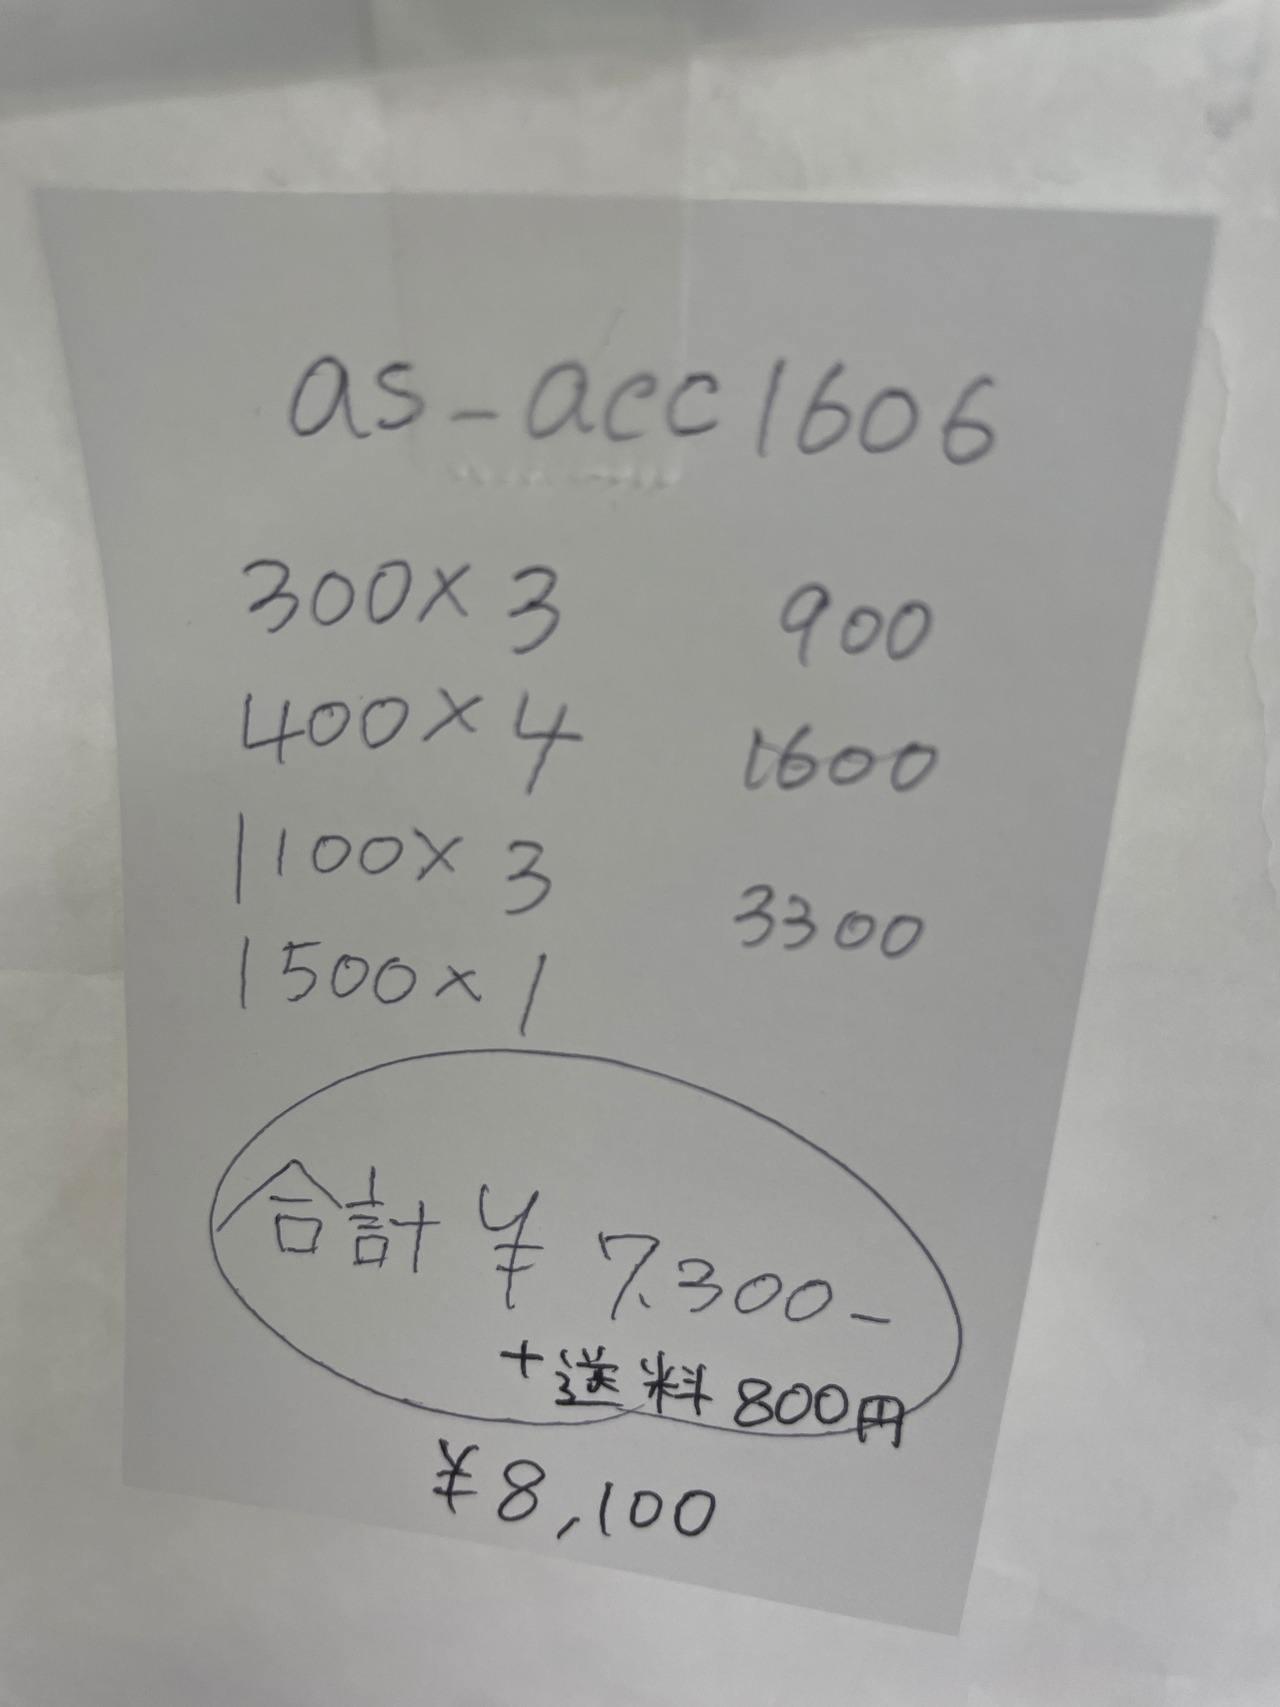 as_acc1606
300×3 900
400×4 1600
1100×3 3300
1500×1
合計 ¥7,300-
+送料800円
¥8,100